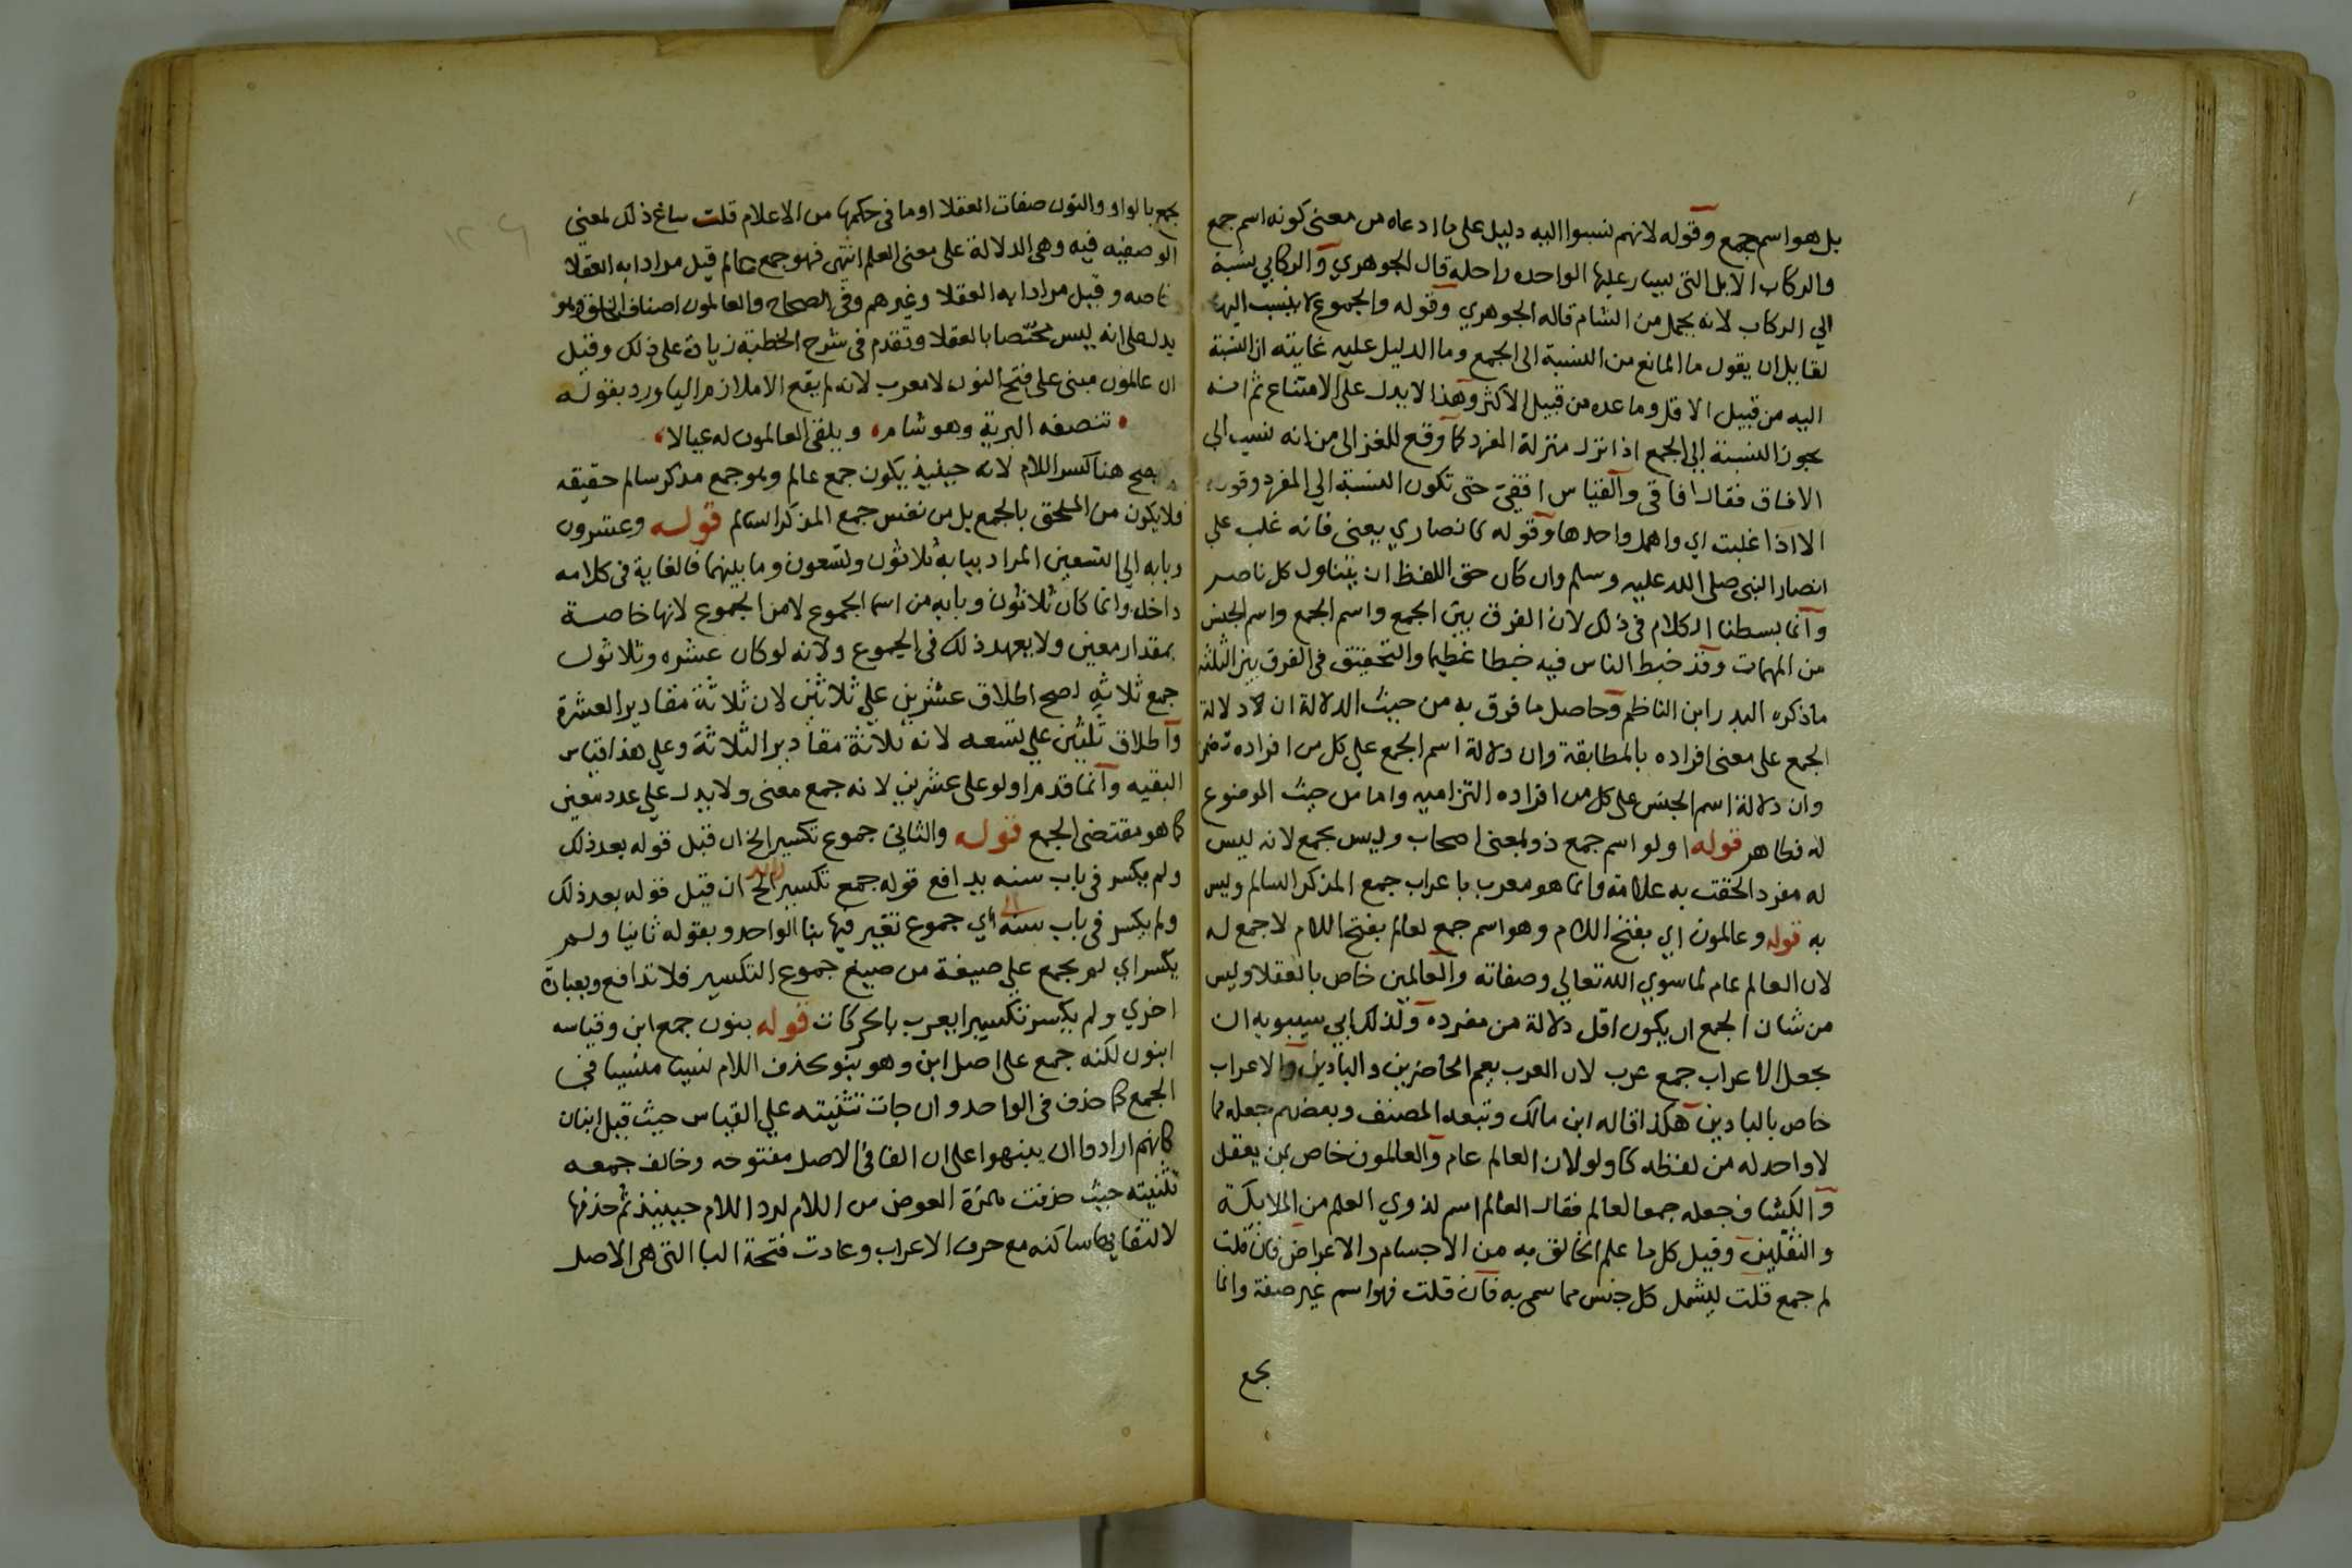 بل هو اسم جمع وقوله لانهم نسبوا اليه دليل على ما ادعاه من معنى كونه اسم جمع
والركاب الابل التي يسار عليها الواحده راحلة قال الجوهري والركابي نسبة
الي الركاب لانه يحمل من الشام قاله الجوهري وقوله والجموع لا ينسب اليها
لقايل ان يقول ما المانع من النسبة الى الجمع وما الدليل عليه غايته ان النسبة
اليه من قبيل الاقل وما عده من قبيل الاكثر وهذا لا يدل على الامتناع ثم انه
يجوز النسبة الى الجمع اذا نزل منزلة المفرد كما وقع للغزالى من انه لنسب الى
الافاق فقال افاقى والقياس افقي حتى تكون النسبة الي المفرد وقوله
الا اذا غلبت اي واهمل واحدها وقوله كانصاري يعنى فانه غلب علي
انصار النبى صلى الله عليه وسلم وان كان حق اللفظ ان يتناول كل ناصر
وانما بسطنا الكلام فى ذلك لان الفرق بين الجمع واسم الجمع واسم الجنس
من المهمات وقد خبط الناس فيه خبطا عظيما والتحقيق فى الفرق بين الثلثه
ماذكره البدر ابن الناظم وحاصل ما فرق به من حيث الدلالة ان لا دلالة
الجمع على معنى افراده بالمطابقة وان دلالة اسم الجمع علي كل من افراده تضمن
وان دلالة اسم الجنس على كل من افراده التزاميه واما من حيث الموضوع
له فظاهر قوله اولو اسم جمع ذو بمعنى اصحاب وليس بجمع لانه ليس
له مفرد الحقت به علامة وانما هو معرب باعراب جمع المذكر السالم وليس
به قوله وعالمون اي بفتح اللام وهو اسم جمع لعالم بفتح اللام لا جمع له
لان العالم عام لما سوي الله تعالي وصفاته والعالمين خاص بالعقلا وليس
من شان الجمع ان يكون اقل دلالة من مفرده ولذلك ابي سيبويه ان
يجعل الاعراب جمع عرب لان العرب يعم الحاضرين والبادين والاعراب
خاص بالبادين هكذا قاله ابن مالك وتبعه المصنف وبعضهم جعله مما
لا واحد له من لفظه كاولو لان العالم عام والعالمون خاص بمن يعقل
والكشاف جعله جمعا لعالم فقال العالم اسم لذوي العلم من الملايكة
والثقلين وقيل كل ما علم الخالق به من الاجسام والاعراض فان قلت
لم جمع قلت ليشمل كل جنس مما سمى به فان قلت فهو اسم غير صفة وانما
يجمع
يجمع بالواو والنون صفات العقلا او ما فى حكمها من الاعلام قلت ساغ ذلك لمعنى
الوصفيه فيه وهى الدلالة على معنى العلم انتهى فهو جمع عالم قيل مرادا به العقلا
خاصه وقيل مرادا به العقلا وغيرهم وفى الصحاح والعالمون اصناف الخلق وهو
يدل على انه ليس مختصا بالعقلا وتقدم فى شرح الخطبة زيادة على ذلك وقيل
ان عالمون مبنى على فتح النون لا معرب لانه لم يقع الا ملازم اليا ورد بقوله
تنصفه البرية وهو شام ويلقى العالمون له عيالا
يصح هنا كسر اللام لانه حينيذ يكون جمع عالم وهو جمع مذكر سالم حقيقه
فلا يكون من الملحق بالجمع بل من نفس جمع المذكر السالم قوله وعشرون
وبابه الي التسعين المراد ببابه ثلاثون وتسعون وما بينهما فالغاية فى كلامه
داخله وانما كان ثلاثون وبابه من اسما الجموع لا من الجموع لانها خاصة
بمقدار معين ولا يعهد ذلك فى الجموع ولانه لو كان عشره وثلاثون
جمع ثلاثه لصح اطلاق عشرين علي ثلاثين لان ثلاثة مقادير العشرة
واطلاق ثلثين علي تسعه لانه ثلاثة مقادير الثلاثة وعلي هذا قياس
البقيه وانما قدم اولو على عشرين لانه جمع معنى ولا يدل علي عدد معين
كما هو مقتضى الجمع قوله والثاني جموع تكسير الخ ان قيل قوله بعد ذلك
ولم يكسر فى باب سنه يدافع قوله جمع تكسير الخ ان قيل قوله بعد ذلك
ولم يكسر فى باب سنه اي جموع تغير فيها بنا الواحد وبقوله ثانيا ولم
يكسر اي لم يجمع علي صيغة من صيغ جموع التكسير فلا تدافع وبعبارة
اخري ولم يكسر تكسيرا يعرب بالحركات قوله بنون جمع ابن وقياسه
ابنون لكنه جمع على اصل ابن وهو بنو بحذف اللام نسيا منسيا في
الجمع كما حذف فى الواحد وان جات تثنيته علي القياس حيث قيل ابنان
كانهم ارادوا ان ينبهوا على ان الفا فى الاصل مفتوحه وخالف جمعه
تثنيته حيث حذفت همزة العوض من اللام لرد اللام حينيذ ثم حذفها
لالتقايها ساكنه مع حرف الاعراب وعادت فتحة البا التى هى الاصل